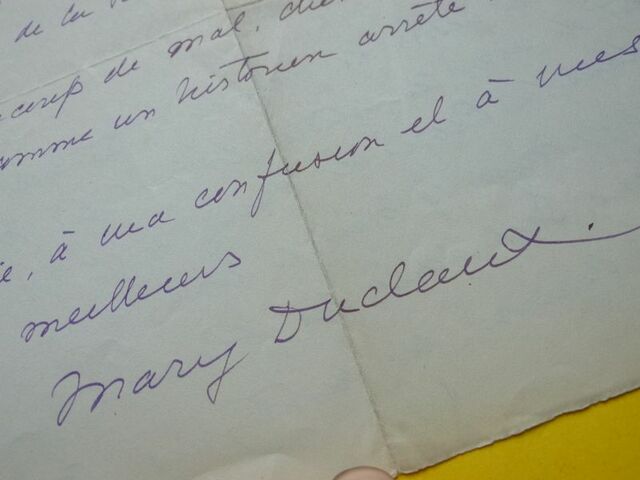 de la
coup de mal, chè
comme un historien arrête
ie, à ma confusion et à mes
meilleurs
Mary Duclaux.